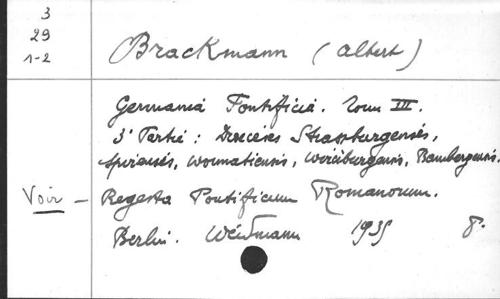 3
29
1-2
Brackmann (Albert)
Germania Pontificia. Tom III.
3ᵉ Partie : Dioeceses Strassburgensis,
Spirensis, Wormatiensis, Wirciburgensis, Bambergensis.
Voir — Regesta Pontificum Romanorum.
Berlin. Weidmann 1935 8.